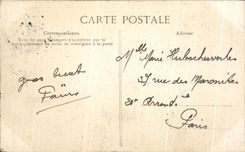 CARTE POSTALE
Correspondance
Adresse
Tous les pays étrangers n'acceptent pas la
correspondance au recto, se renseigner à la poste
Mlle Marie
37 rue des Maronites
20e Arrond
Paris
gros